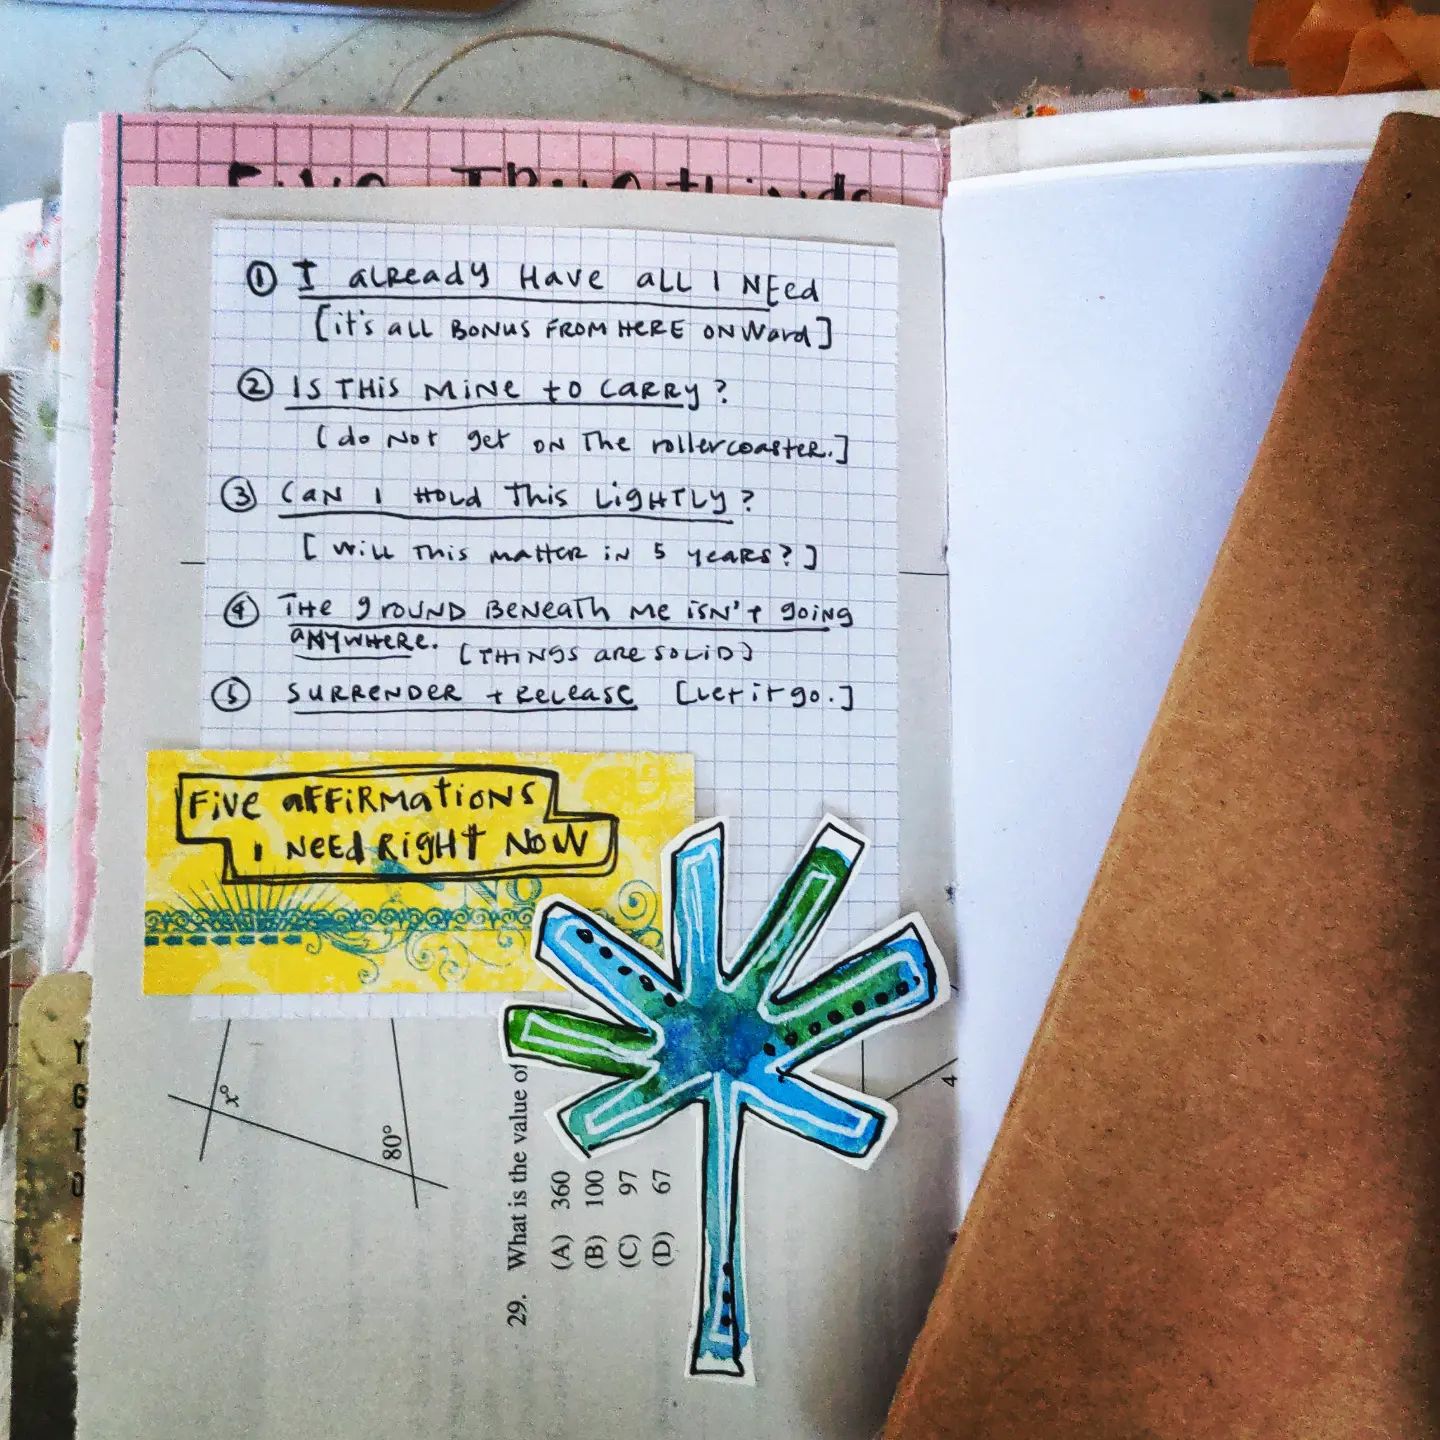 Five True things
① I already Have all I Need
[it's all Bonus From Here Onward]
② Is This Mine to Carry?
[do Not get on The rollercoaster.]
③ Can I Hold This Lightly?
[Will This matter in 5 years?]
④ The ground Beneath Me isn't going
anywhere. [Things are solid]
⑤ Surrender + Release [Let it go.]
Five affirmations
I Need Right Now
x°
80°
4
29. What is the value of
(A) 360
(B) 100
(C) 97
(D) 67
Y
G
T